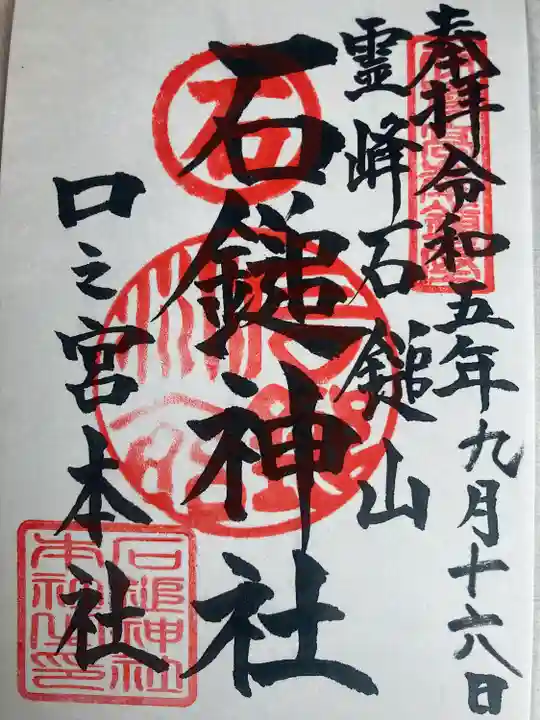 奉拝令和五年九月十六日
霊峰石鎚山
石鎚神社
口之宮本社
石
石鎚神社
本社之印